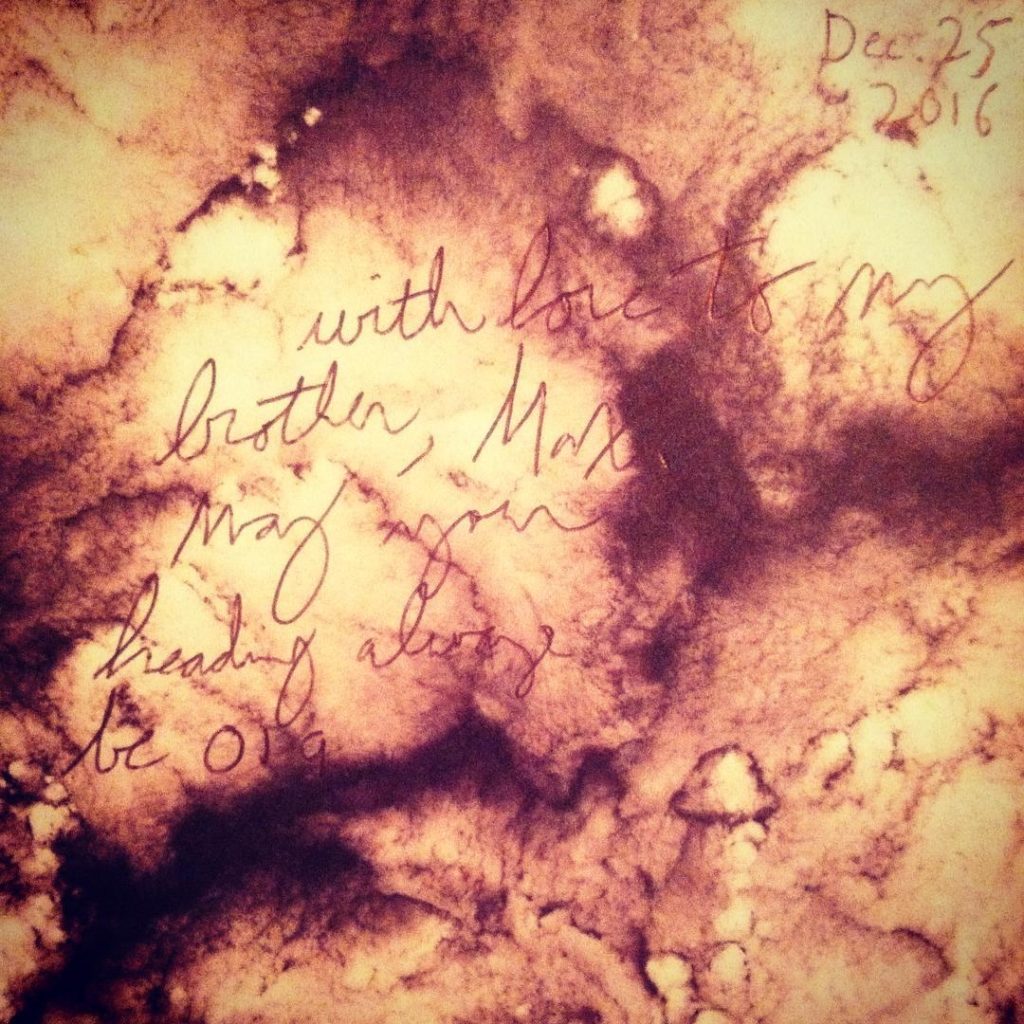 Dec. 25
2016
with love to my
brother, Max.
may your
heading always
be 019